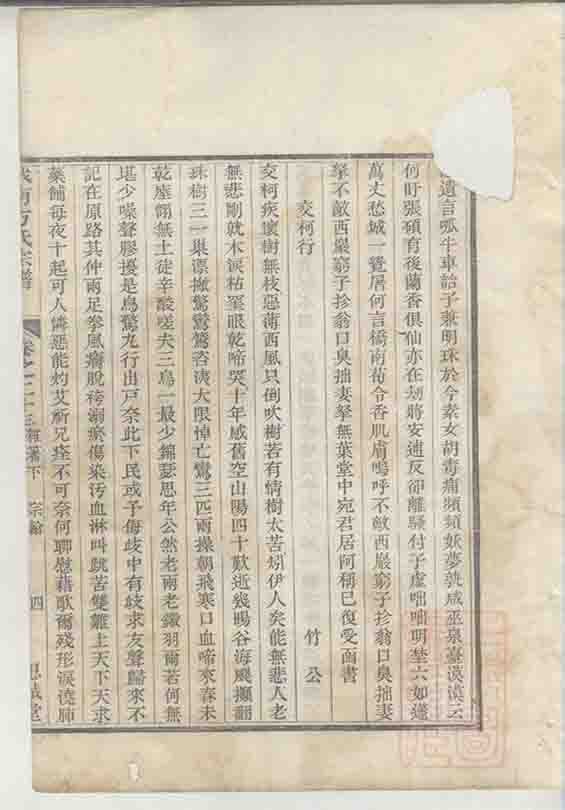 遺言呱牛車詒子兼明珠於今素女胡毒痡頻頻妖夢孰咸巫泉臺漠漠云
何盱張碩育後蘭香俱仙亦在刼將安逋反卻離騷付子虛咄咄明埜六如蓬
萬丈愁城一覽居何言橋南荀令香肌膚嗚呼不敵西巖窮子抮翁口臭拙妻
拏不敵西巖窮子抮翁口臭拙妻拏無葉堂中宛君居何稱巳復受函書
交柯行 竹公
交柯疾壞樹無枝惡薄西風只倒吹樹若有情樹太苦矧伊人矣能無悲人老
無悲剛就木淚枯罣眼乾啼哭十年感舊空山陽四十歎逝幾暘谷海颶攧翻
珠樹三一巢漂撇驚鶯鶯咨洟大限悼亡鸞三匹兩操朝飛寒口血啼來春未
乾塵翻無土徒辛酸嗟夫三鳥一最少錦瑟思年公然老兩老鎩羽雨若何無
堪少噪聲膠擾是鳥驚九行出戸奈此下民或予侮歧中有歧求友聲歸來不
記在原路其仲兩足拳風癱脫袴溺瘀傷染污血淋叫跳苦雙離上天下天求
藥餔每夜十起可人憐惡能灼艾所兄痊不可奈何聊慰藉歌爾殘形淚澆肺
氏宗譜 卷之二十三 雜著下 宗翰 四 思誠堂